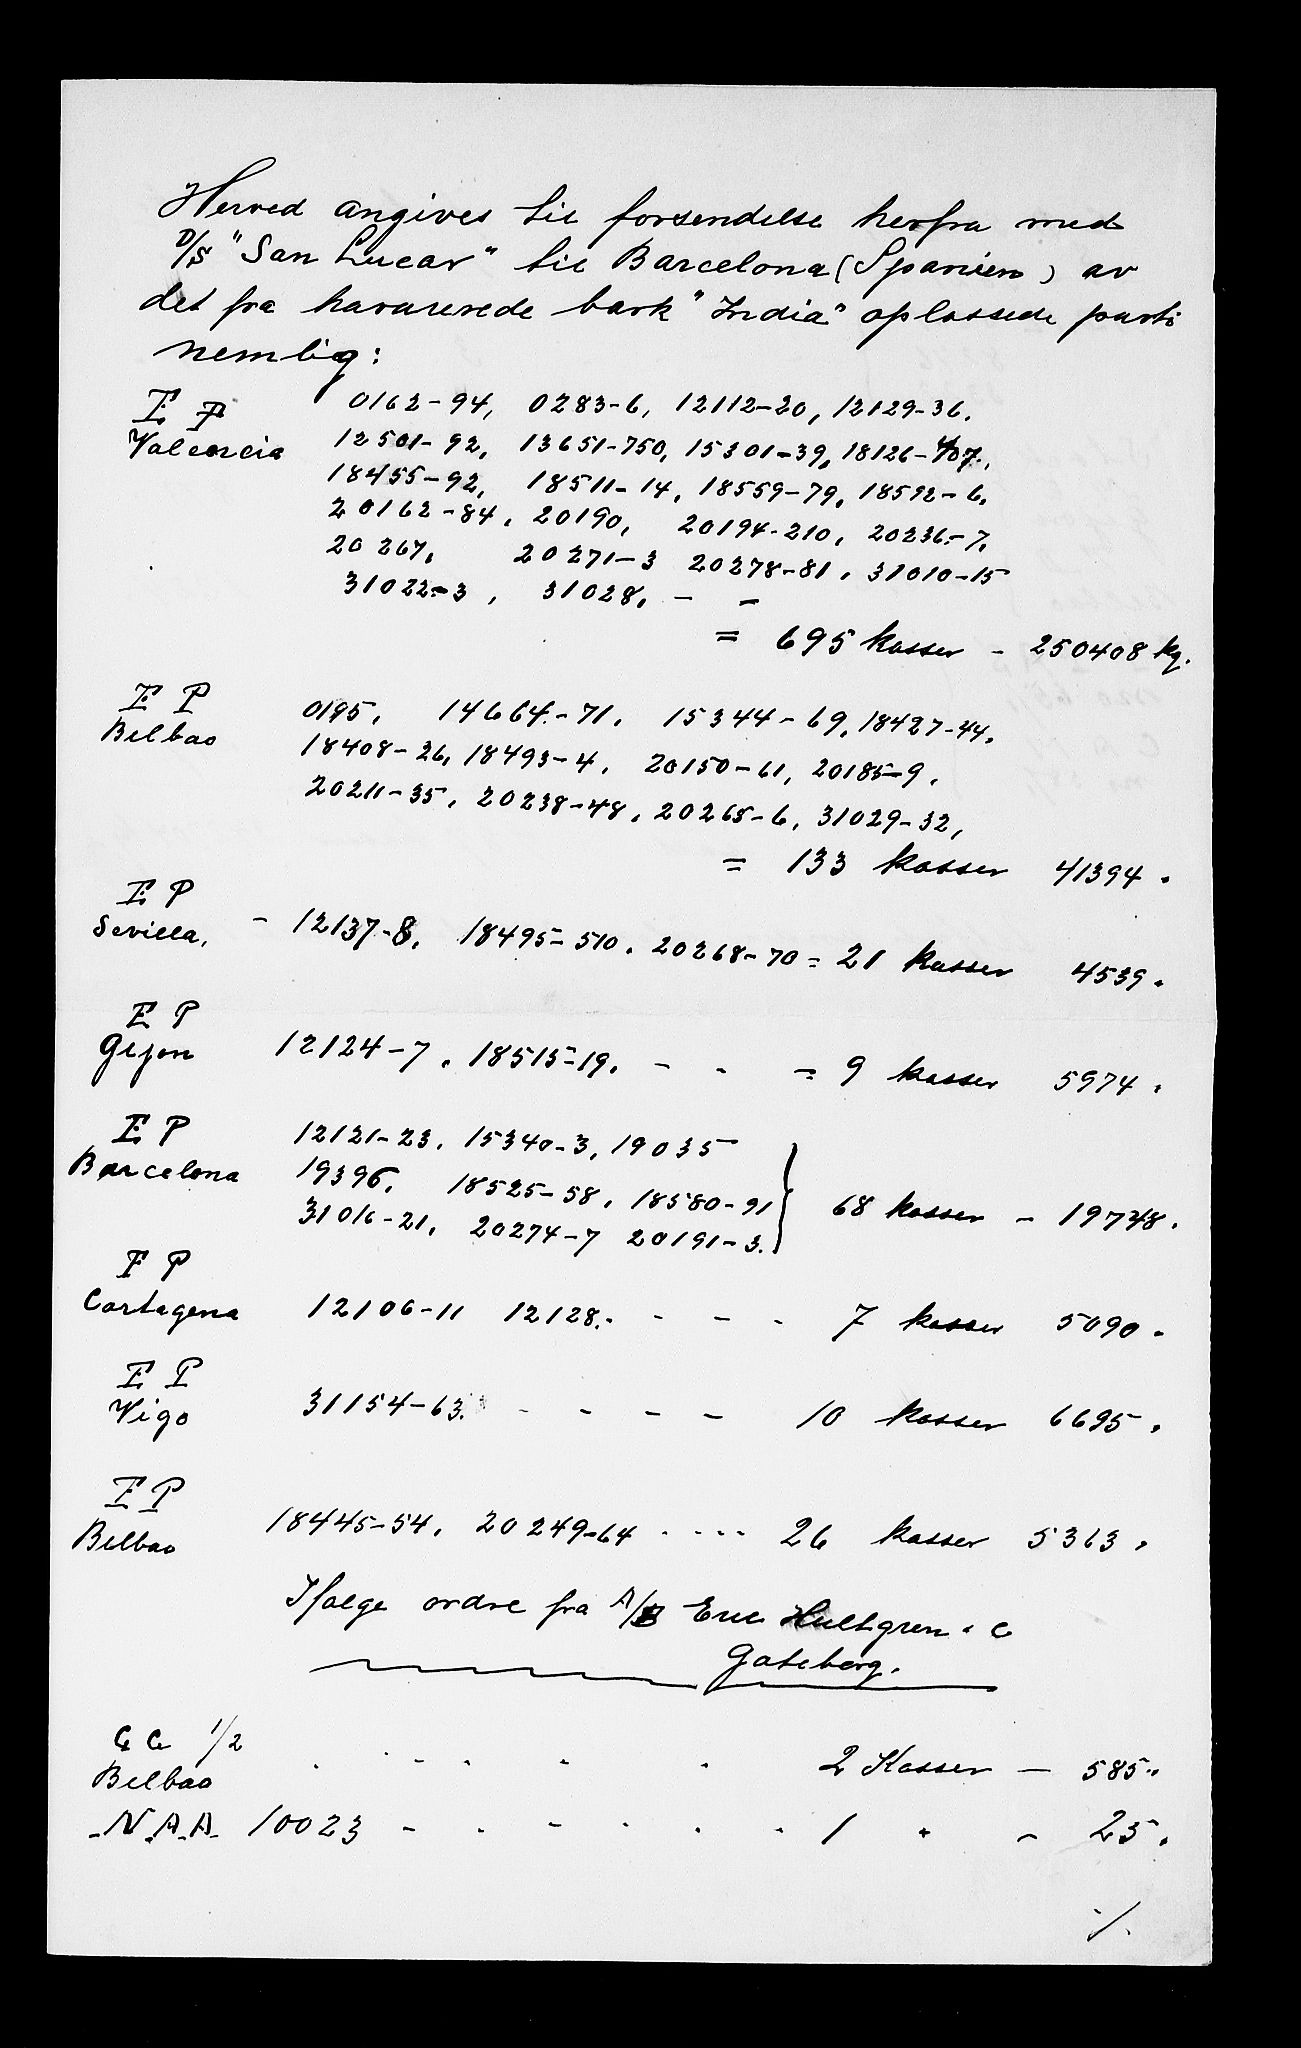 Herved angives til forsendelse herfra med
D/S "San Lucar" til Barcelona (Spanien) av
det fra havarerede bark "India" oplossede parti
nemlig:
E P 0162-94, 0283-6, 12112-20, 12129-36.
Valencia 12501-92, 13651-750, 15301-39, 18126-407.,
18455-92, 18511-14, 18559-79, 18592-6,
20162-84, 20190, 20194-210, 20236-7,
20267, 20271-3 20278-81, 31010-15
31022-3, 31028. - -
= 695 kasser - 250408 kg.
E P
Bilbao 0195, 14664-71, 15344-69, 18427-44,
18408-26, 18493-4, 20150-61, 20185-9,
20211-35, 20238-48, 20265-6, 31029-32,
= 133 kasser 41394 "
E P
Sevilla, - 12137-8, 18495-510, 20268-70 = 21 kasser 4539 "
E P
Gijon 12124-7, 18515-19. - - = 9 kasser 5974 "
E P 12121-23, 15340-3, 19035
Barcelona 19396, 18525-58, 18580-91 } 68 kasser - 19748 "
31016-21, 20274-7 20191-3.
E P
Cartagena 12106-11 12128. - - - - 7 kasser 5090 "
E P
Vigo 31154-63. - - - - 10 kasser 6695 "
E P
Bilbao 18445-54, 20249-64 - - - - 26 kasser 5363 "
Ifølge ordre fra A/B Eric Hultgren & C
Gøteborg.
C C 1/2
Bilbao - - - - - - 2 Kasser - 585 "
-N.A.A. 10023 - - - - - - 1 " - 25 "
./.